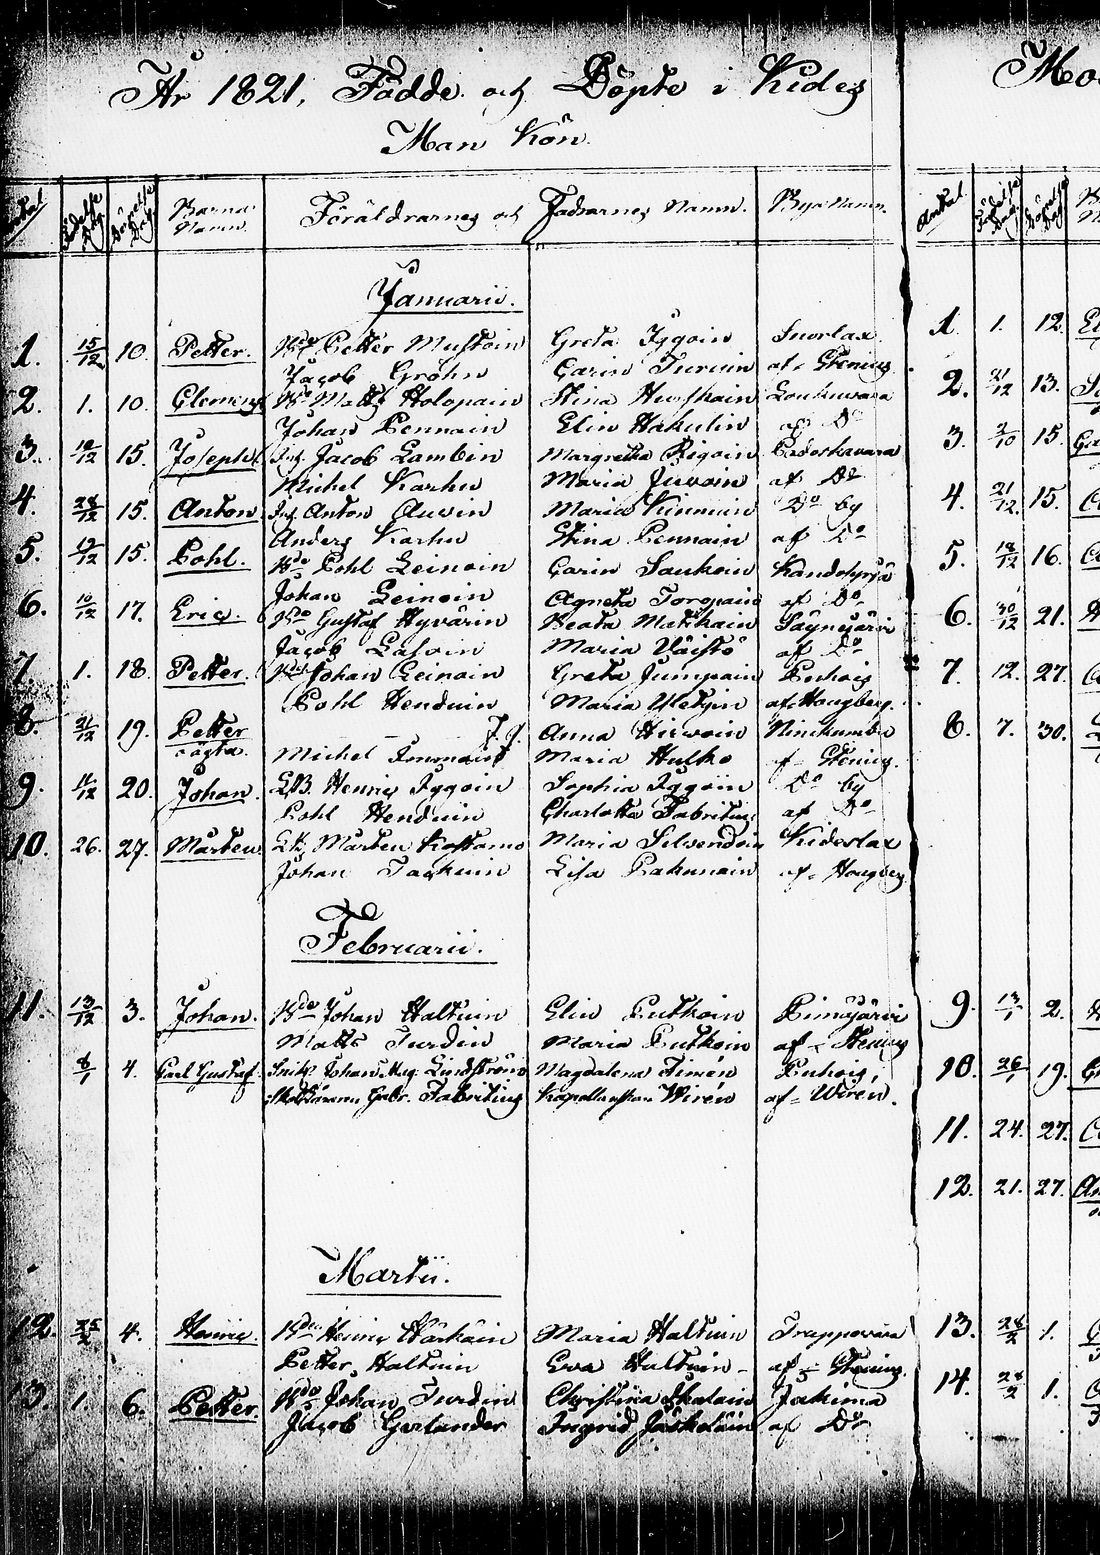 År 1821, Födde och Döpte i Kides
Man Kön.
Antal Födelse Dag. Döpelse Dag. Barnens Namn. Föräldrarnes och Faddrarnes Namn. Byanamn.
Januarii.
1. 15/12 10. Petter. Bde Petter Mustoin Greta Iggoin Suorlax
Jacob Gröhn Carin Turuin af Stenius
2. 1. 10 Clemens Bde Matts Holopain Stina Hurskain Loukuvara
Johan Pennain Elin Hakulin af Do
3. 12/12 15. Joseph Inh Jacob Lambin Margretha Rigoin Padoskavara
Michel Karhu Maria Juvoin af Do
4. 28/12 15. Anton Inh Anton Auvin Maria Kinnuin Do by
Anders Karhu Stina Pennain af Do
5. 13/12 15. Pohl. Bde Pohl Leinoin Carin Saukoin Kandohyrjä
Johan Leinoin Agneta Toropain af Do
6. 10/12 17. Eric. Bde Gustaf Hyvärin Beata Matikain Säynejärvi
Jacob Lasoin Maria Väistö af Do
7. 1. 18. Petter. Bde Johan Leinoin Greta Jumpain Puhois
Pohl Henduin Maria Uetzin af Hougberg.
8. 21/12 19. Petter oägta. J. q. Anna Hirvoin Niinikumbu
Michel Immoin Maria Hulko af Stenius.
9. 11/12 20. Johan. Henric Iggoin Sophia Iggoin Do by
Pohl Henduin Charlotta Fabritius af Do
10. 26. 27. Mårten Mårten Kostamo Maria Silvendoin Kideslax
Johan Taskuin Lisa Pakunain af Hougberg
Februarii.
11. 13/12 3. Johan. Bde Johan Haltuin Elin Putkoin Pimijärvi
Matts Turdin Maria Putkoin af Stenius
8/1 4. Carl Gustaf. Johan Mag. Lindström Magdalena Timén Puhois,
Gabr. Fabritius Kapellanskan Wirén af Wirén.
Martii.
12. 25/2 4. Henric. Bde Henric Härkäin Maria Haltuin Trappovara
Petter Haltuin Eva Haltuin af Stenius.
13. 1. 6. Petter. Bde Johan Turdin Christina Ikalain Jakima
Jacob Gerlander Ingrid Jäskeläin af Do
Antal. Födelse Dag. Döpelse Dag
1. 1. 12.
2. 21/12 13.
3. 2/10 15.
4. 21/12 15.
5. 18/12 16.
6. 30/12 21.
7. 12. 27.
8. 7. 30.
9. 13/1 2.
10. 26/1 19.
11. 24. 27.
12. 21. 27.
13. 28/2 1.
14. 28/2 1.